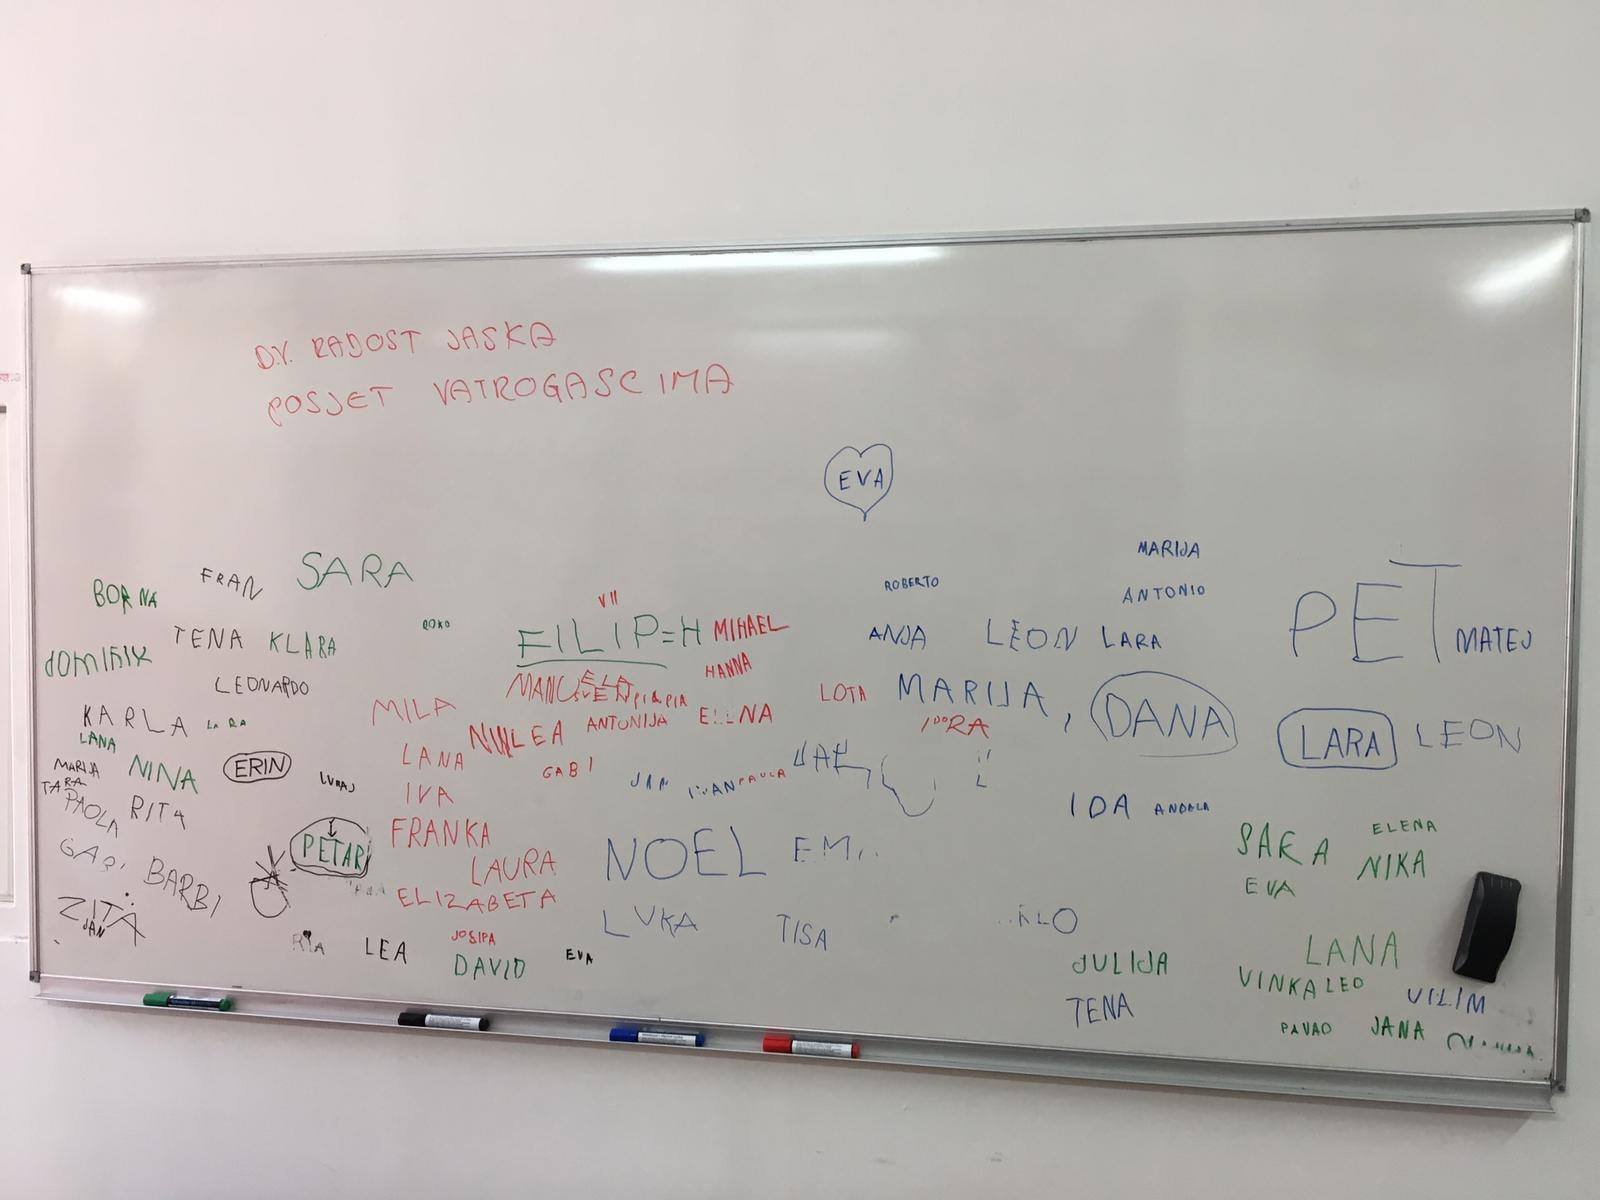 D.V. RADOST JASKA
POSJET VATROGASCIMA
EVA
MARIJA
FRAN SARA ROBERTO ANTONIO
BORNA VII PET
TENA KLARA ROKO FILIP=H MIHAEL ANJA LEON LARA MATEJ
DOMINIK HANNA
LEONARDO LOTA MARIJA, DANA
KARLA LARA MILA ANTONIJA LARA LEON
LANA LEA
MARIJA NINA ERIN LANA GABI JAN PAULA
TARA IVA
PAOLA RITA IDA
PETAR FRANKA NOEL SARA ELENA
BARBI LAURA NIKA
ELIZABETA EVA
ZITA LUKA TISA
JAN LEA JOSIPA EVA LANA
DAVID JULIJA
VINKA LEO VILIM
TENA PAVAO JANA